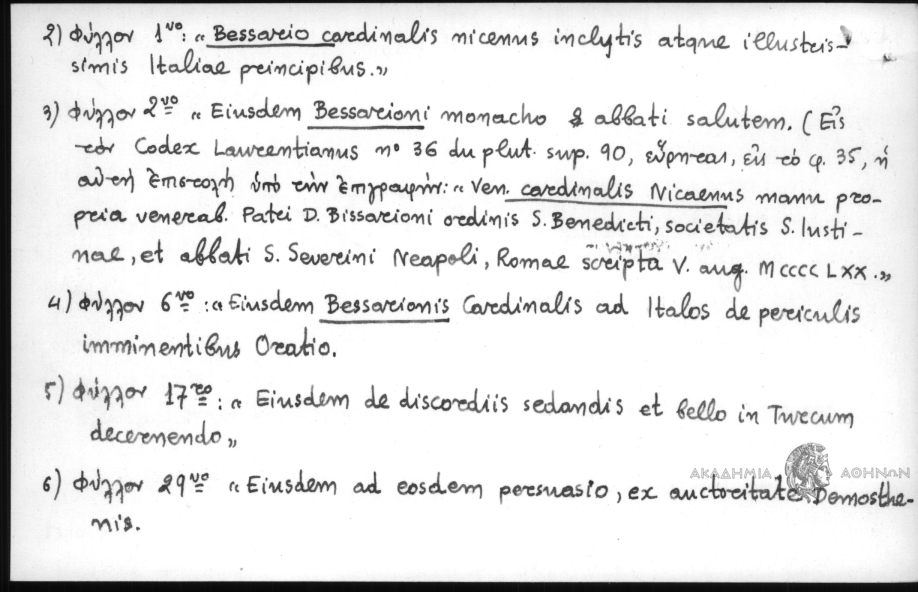 2) Φύλλον 1νο: „ Bessario cardinalis nicenus inclytis atque illustris-
simis Italiae principibus.„
3) Φύλλον 2νο „ Eiusdem Bessarioni monacho & abbati salutem. (Εἰς
τὸν Codex Laurentianus nº 36 du plut. sup. 90, εὕρηται, εἰς τὸ φ. 35, ἡ
αὐτὴ ἐπιστολὴ ὑπὸ τὴν ἐπιγραφήν: „ Ven. cardinalis Nicaenus manu pro-
pria venerab. Patri D. Bissarioni ordinis S. Benedicti, societatis S. Iusti-
nae, et abbati S. Severini Neapoli, Romae scripta V. aug. MCCCCLXX.„
4) Φύλλον 6νο: „ Eiusdem Bessarionis Cardinalis ad Italos de periculis
imminentibus Oratio.
5) Φύλλον 17ro: „ Eiusdem de discordiis sedandis et bello in Turcum
decernendo„
6) Φύλλον 29νο „ Eiusdem ad eosdem persuasio, ex auctoritate Demosthe-
nis.
ΑΚΑΔΗΜΙΑ ΑΘΗΝΩΝ